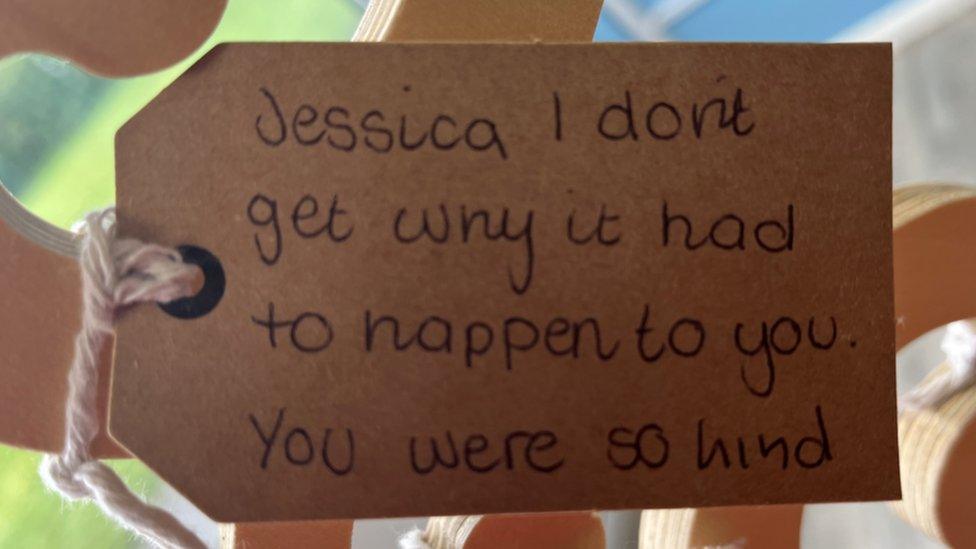 Jessica I don't
get why it had
to happen to you.
You were so kind